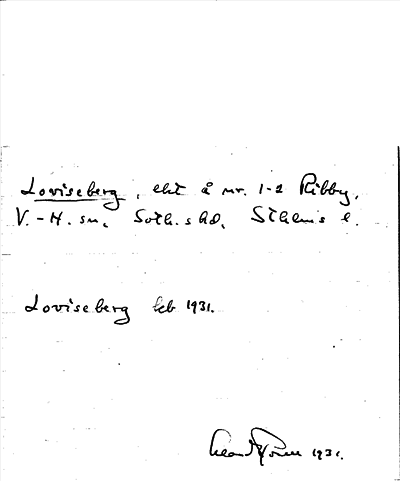 Loviseberg, ekt å nr. 1-2 Ribby,
V.-H. sn, Soth. shd, Sthlms l.
Loviseberg 1931.
1931.